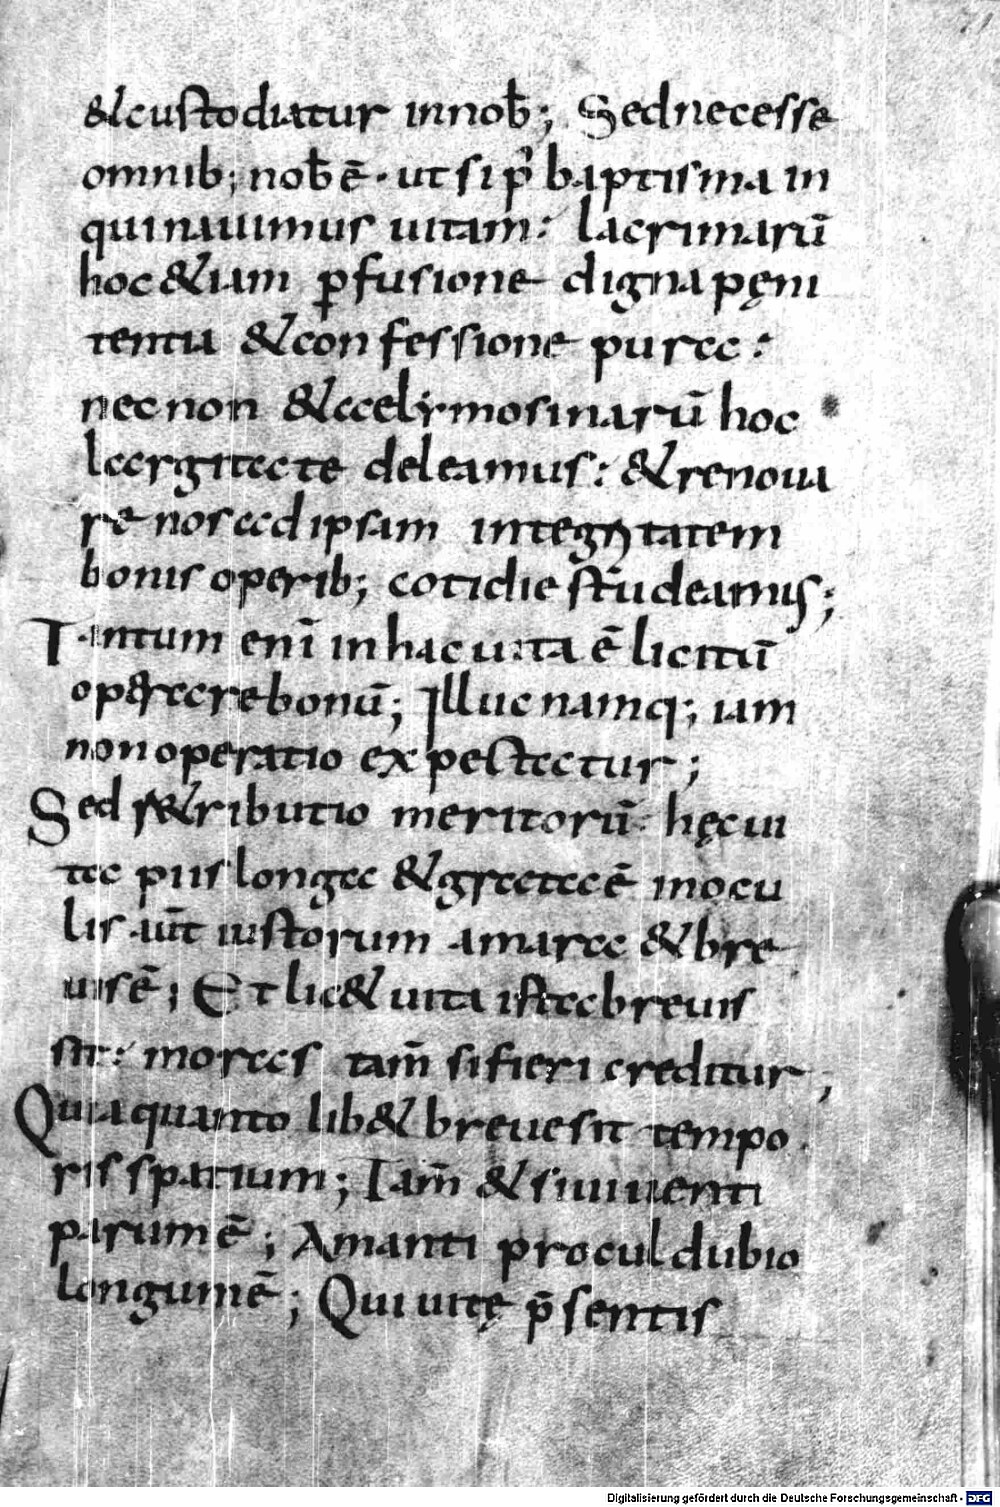 &custodiatur in nob̄; Sed necesse
omnib; nob̄ ē · ut si p̓ baptisma in
quinauimus uitam: lacrimarū
hoc &iam pfusione digna pęni
tentia & confessione pura:
nec non & aelymosinarū hoc
largitate deleamus: & renoua
re nos ad ipsam integritatem
bonis operib; cotidie studeamus;
Tantum enī in hac uita ē licitū
operare bonū; Illuc namq; iam
non operatio expectatur;
Sed r&ributio meritorū: hęc ui
ta piis longa & grata ē in ocu
lis uūt iustorum amara & bre
uis ē; Et lic& uita ista breuis
sit: moras tam̄ si fieri creditur;
Quia quanto lib& breue sit tempo
ris spatium; Tam̄ & si uiuenti
parum ē; Amanti procul dubio
longum ē; Qui uitę p̄sentis
Digitalisierung gefördert durch die Deutsche Forschungsgemeinschaft - DFG